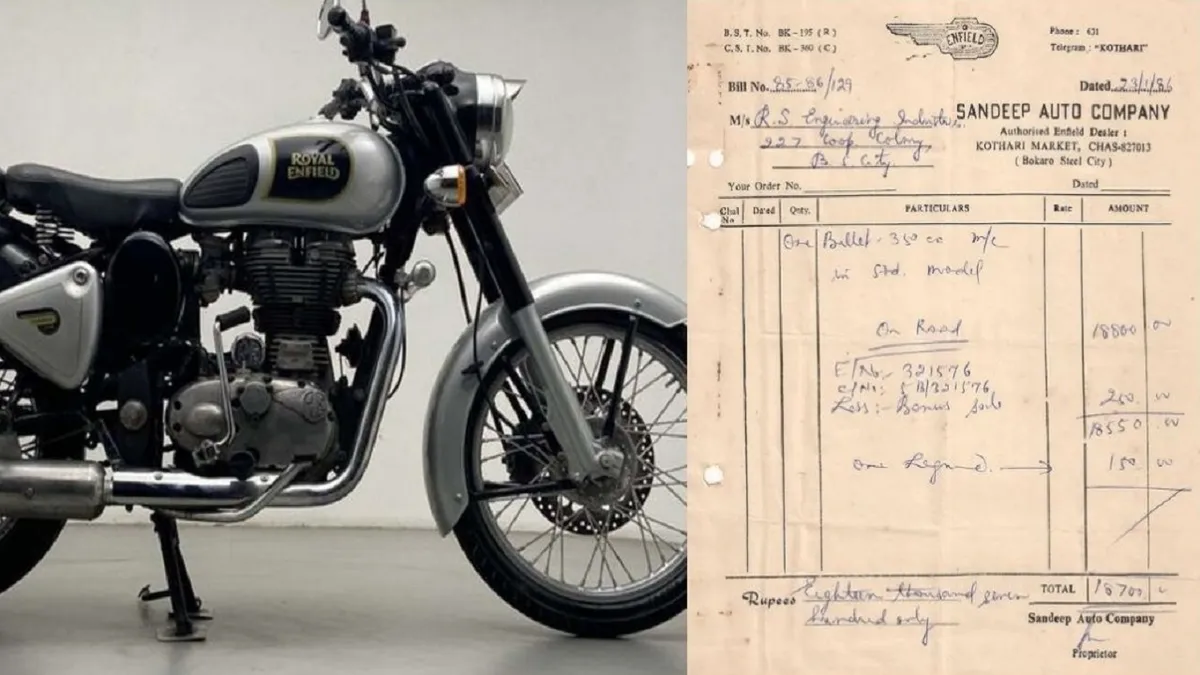 ROYAL
ENFIELD
B.S.T. No. BK-195 (R)
C.S.T. No. BK-360 (C)
ENFIELD
Phone : 631
Telegram : "KOTHARI"
Bill No. 85-86/129
Dated 23/1/86
M/s R.S Engineering Industries
227 Coop. Colony
B. S. City
SANDEEP AUTO COMPANY
Authorised Enfield Dealer :
KOTHARI MARKET, CHAS-827013
( Bokaro Steel City )
Your Order No. Dated
Chal No Dated Qnty. PARTICULARS Rate AMOUNT
One Bullet - 350 cc m/c
in Std. model
On Road 18800 00
E/No:- 321576
C/No:- 5B/321576
Less :- Bonus 250 00
18550 00
One 150 00
Rupees Eighteen thousand seven
hundred only
TOTAL 18700
Sandeep Auto Company
Proprietor